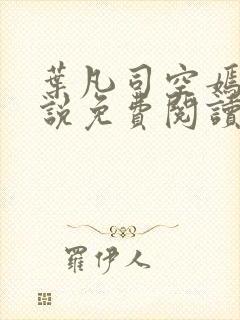 葉凡司空嫣
說免費閱讀
羅伊人